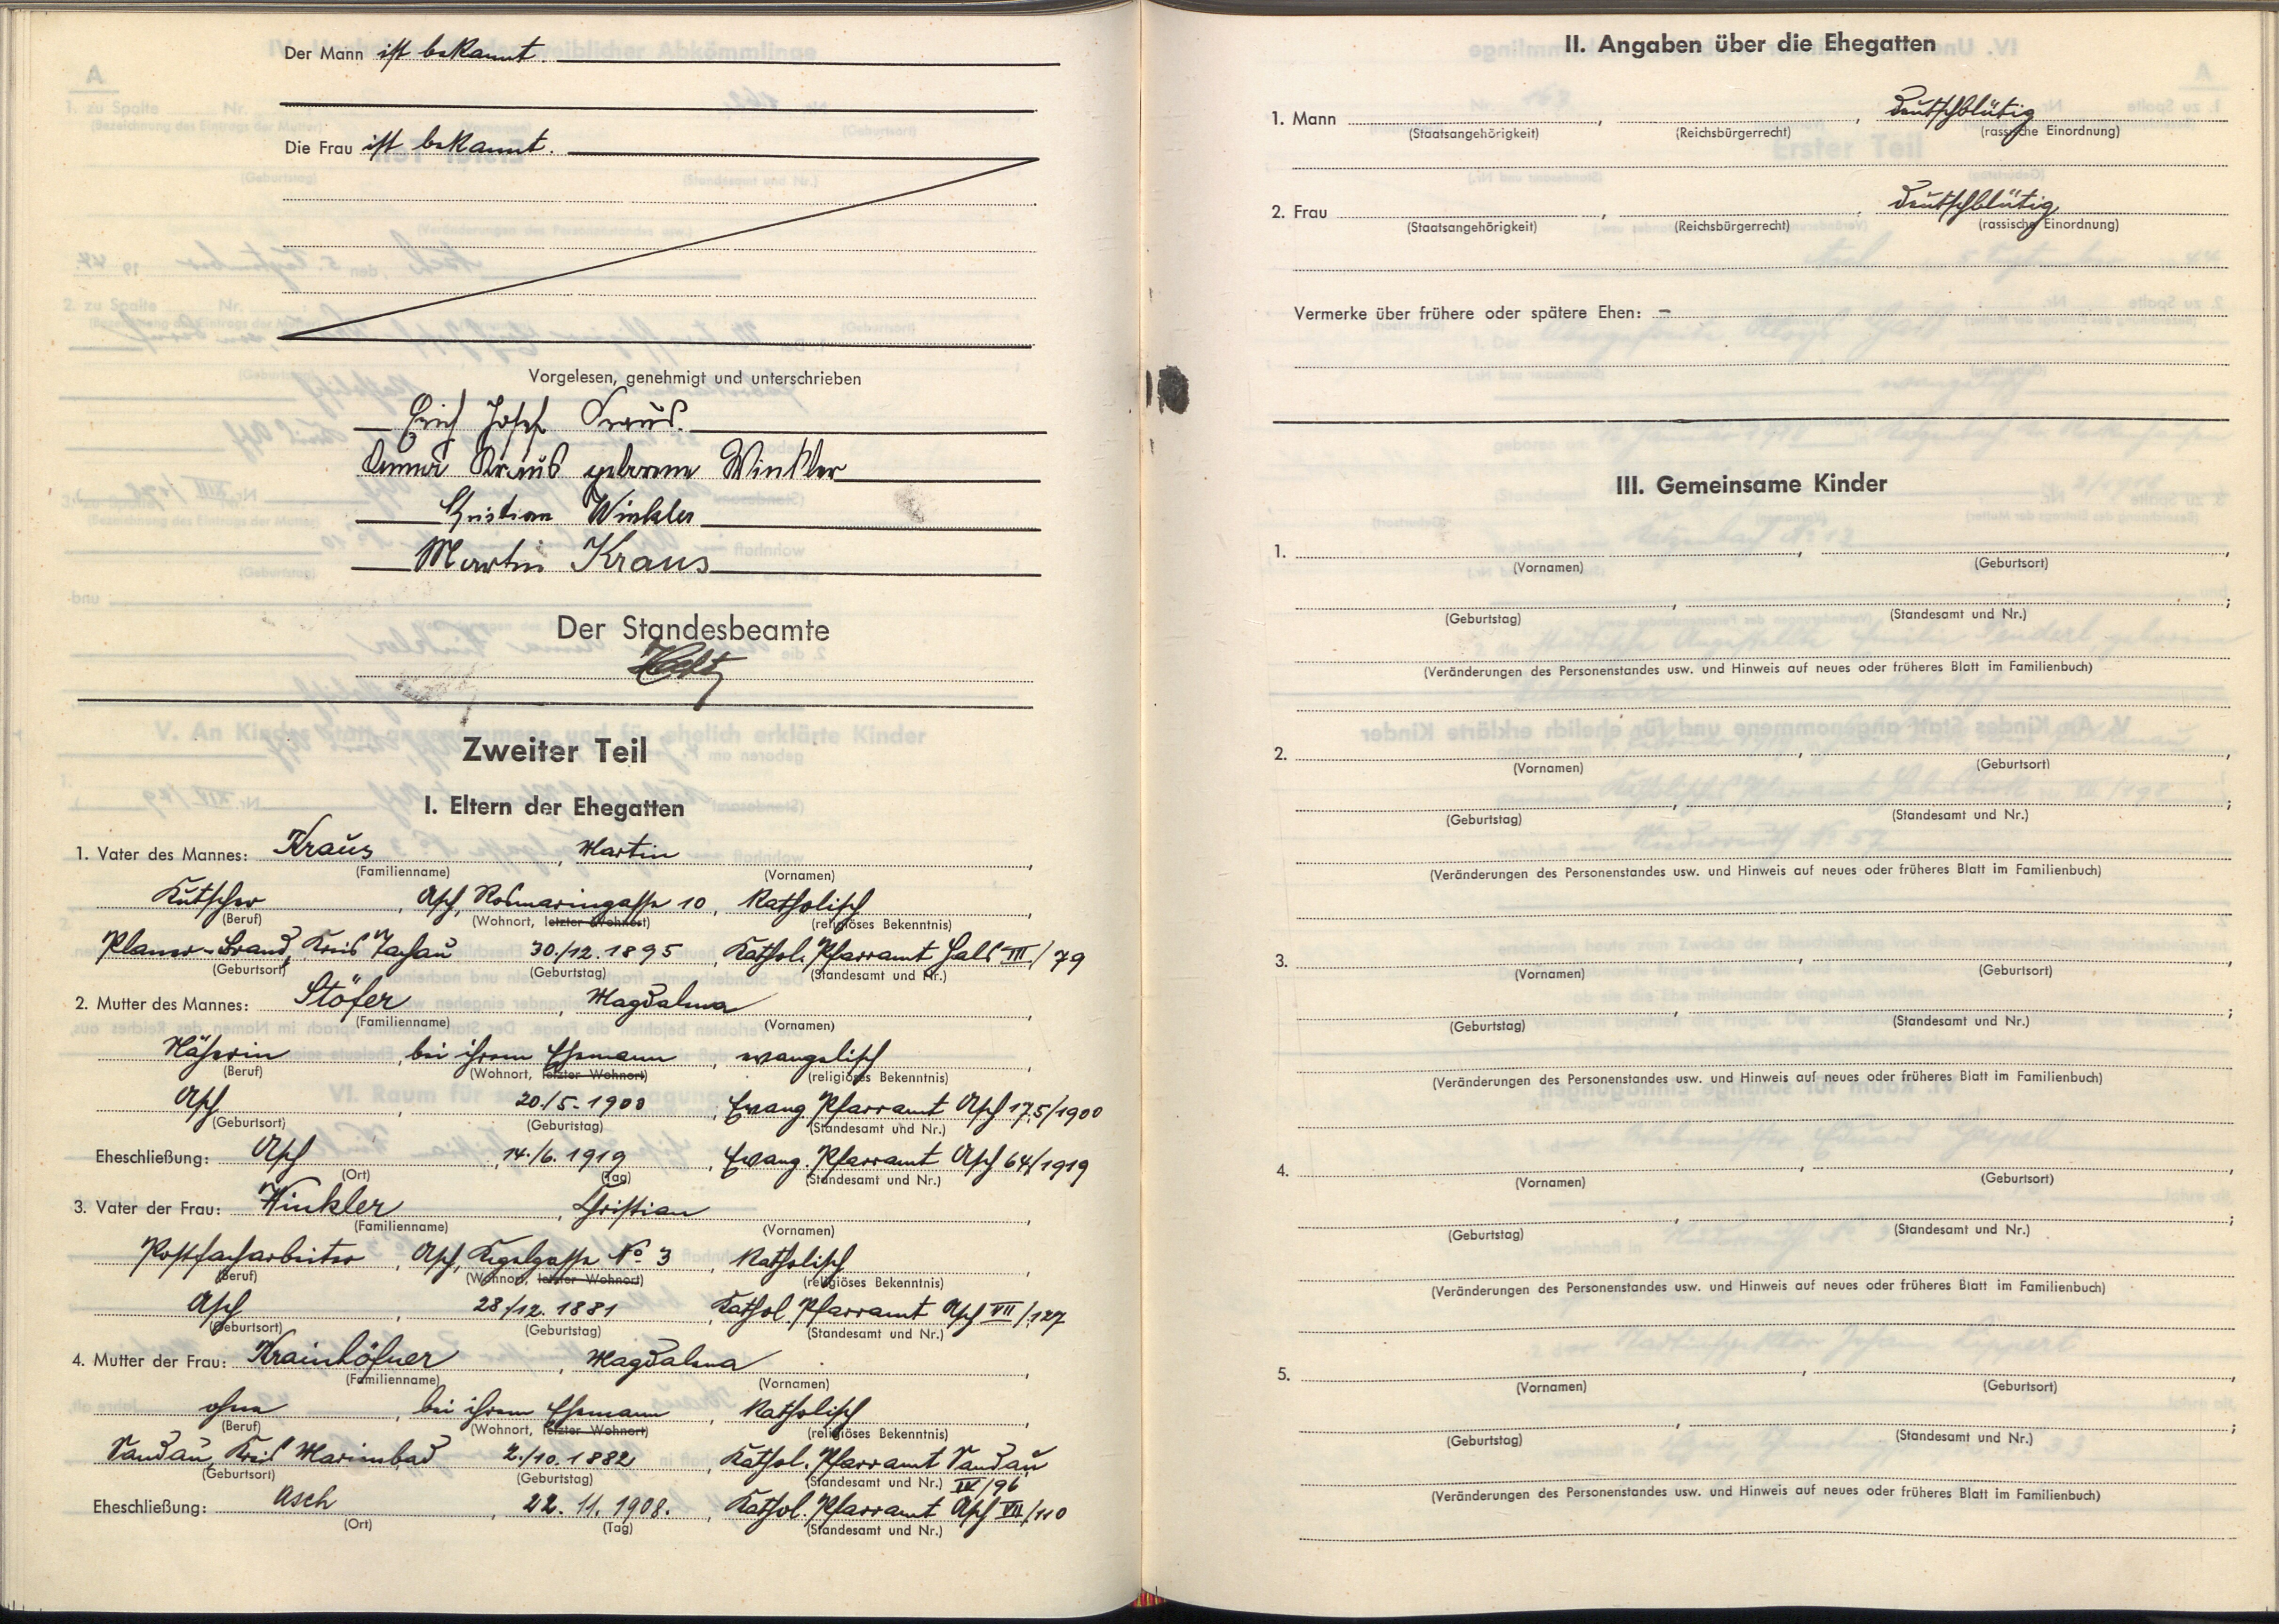 Der Mann ist bekannt.
Die Frau ist bekannt.
Vorgelesen, genehmigt und unterschrieben
Erich Josef Kraus.
Anna Kraus geborene Winkler
Christian Winkler
Martin Kraus
Der Standesbeamte
Zweiter Teil
I. Eltern der Ehegatten
1. Vater des Mannes: Kraus, Martin,
(Familienname) (Vornamen)
Kutscher, Asch, Rosmaringasse 10, Katholisch,
(Beruf) (Wohnort, letzter Wohnort) (religiöses Bekenntnis)
Planer-Brand, Kreis Tachau 30./12. 1895, Kathol. Pfarramt Hals III./79
(Geburtsort) (Geburtstag) (Standesamt und Nr.)
2. Mutter des Mannes: Stöfer, Magdalena,
(Familienname) (Vornamen)
Näherin, bei ihrem Ehemann, evangelisch,
(Beruf) (Wohnort, letzter Wohnort) (religiöses Bekenntnis)
Asch, 20./5. 1900, Evang. Pfarramt Asch 175/1900
(Geburtsort) (Geburtstag) (Standesamt und Nr.)
Eheschließung: Asch, 14./6. 1919, Evang. Pfarramt Asch 64/1919
(Ort) (Tag) (Standesamt und Nr.)
3. Vater der Frau: Winkler, Christian,
(Familienname) (Vornamen)
Postfacharbeiter, Asch, Kegelgasse No. 3, Katholisch,
(Beruf) (Wohnort, letzter Wohnort) (religiöses Bekenntnis)
Asch, 28./12. 1881, Kathol. Pfarramt Asch VII/127
(Geburtsort) (Geburtstag) (Standesamt und Nr.)
4. Mutter der Frau: Krainhöfner, Magdalena,
(Familienname) (Vornamen)
ohne, bei ihrem Ehemann, Katholisch,
(Beruf) (Wohnort, letzter Wohnort) (religiöses Bekenntnis)
Sandau, Kreis Marienbad 2./10. 1882, Kathol. Pfarramt Sandau
(Geburtsort) (Geburtstag) (Standesamt und Nr.) IV/96
Eheschließung: Asch, 22. 11. 1908., Kathol. Pfarramt Asch VII/110
(Ort) (Tag) (Standesamt und Nr.)
II. Angaben über die Ehegatten
1. Mann , , deutschblütig
(Staatsangehörigkeit) (Reichsbürgerrecht) (rassische Einordnung)
2. Frau , , deutschblütig
(Staatsangehörigkeit) (Reichsbürgerrecht) (rassische Einordnung)
Vermerke über frühere oder spätere Ehen: –
III. Gemeinsame Kinder
1. , ,
(Vornamen) (Geburtsort)
, ;
(Geburtstag) (Standesamt und Nr.)
(Veränderungen des Personenstandes usw. und Hinweis auf neues oder früheres Blatt im Familienbuch)
2. , ,
(Vornamen) (Geburtsort)
, ;
(Geburtstag) (Standesamt und Nr.)
(Veränderungen des Personenstandes usw. und Hinweis auf neues oder früheres Blatt im Familienbuch)
3. , ,
(Vornamen) (Geburtsort)
, ;
(Geburtstag) (Standesamt und Nr.)
(Veränderungen des Personenstandes usw. und Hinweis auf neues oder früheres Blatt im Familienbuch)
4. , ,
(Vornamen) (Geburtsort)
, ;
(Geburtstag) (Standesamt und Nr.)
(Veränderungen des Personenstandes usw. und Hinweis auf neues oder früheres Blatt im Familienbuch)
5. , ,
(Vornamen) (Geburtsort)
, ;
(Geburtstag) (Standesamt und Nr.)
(Veränderungen des Personenstandes usw. und Hinweis auf neues oder früheres Blatt im Familienbuch)